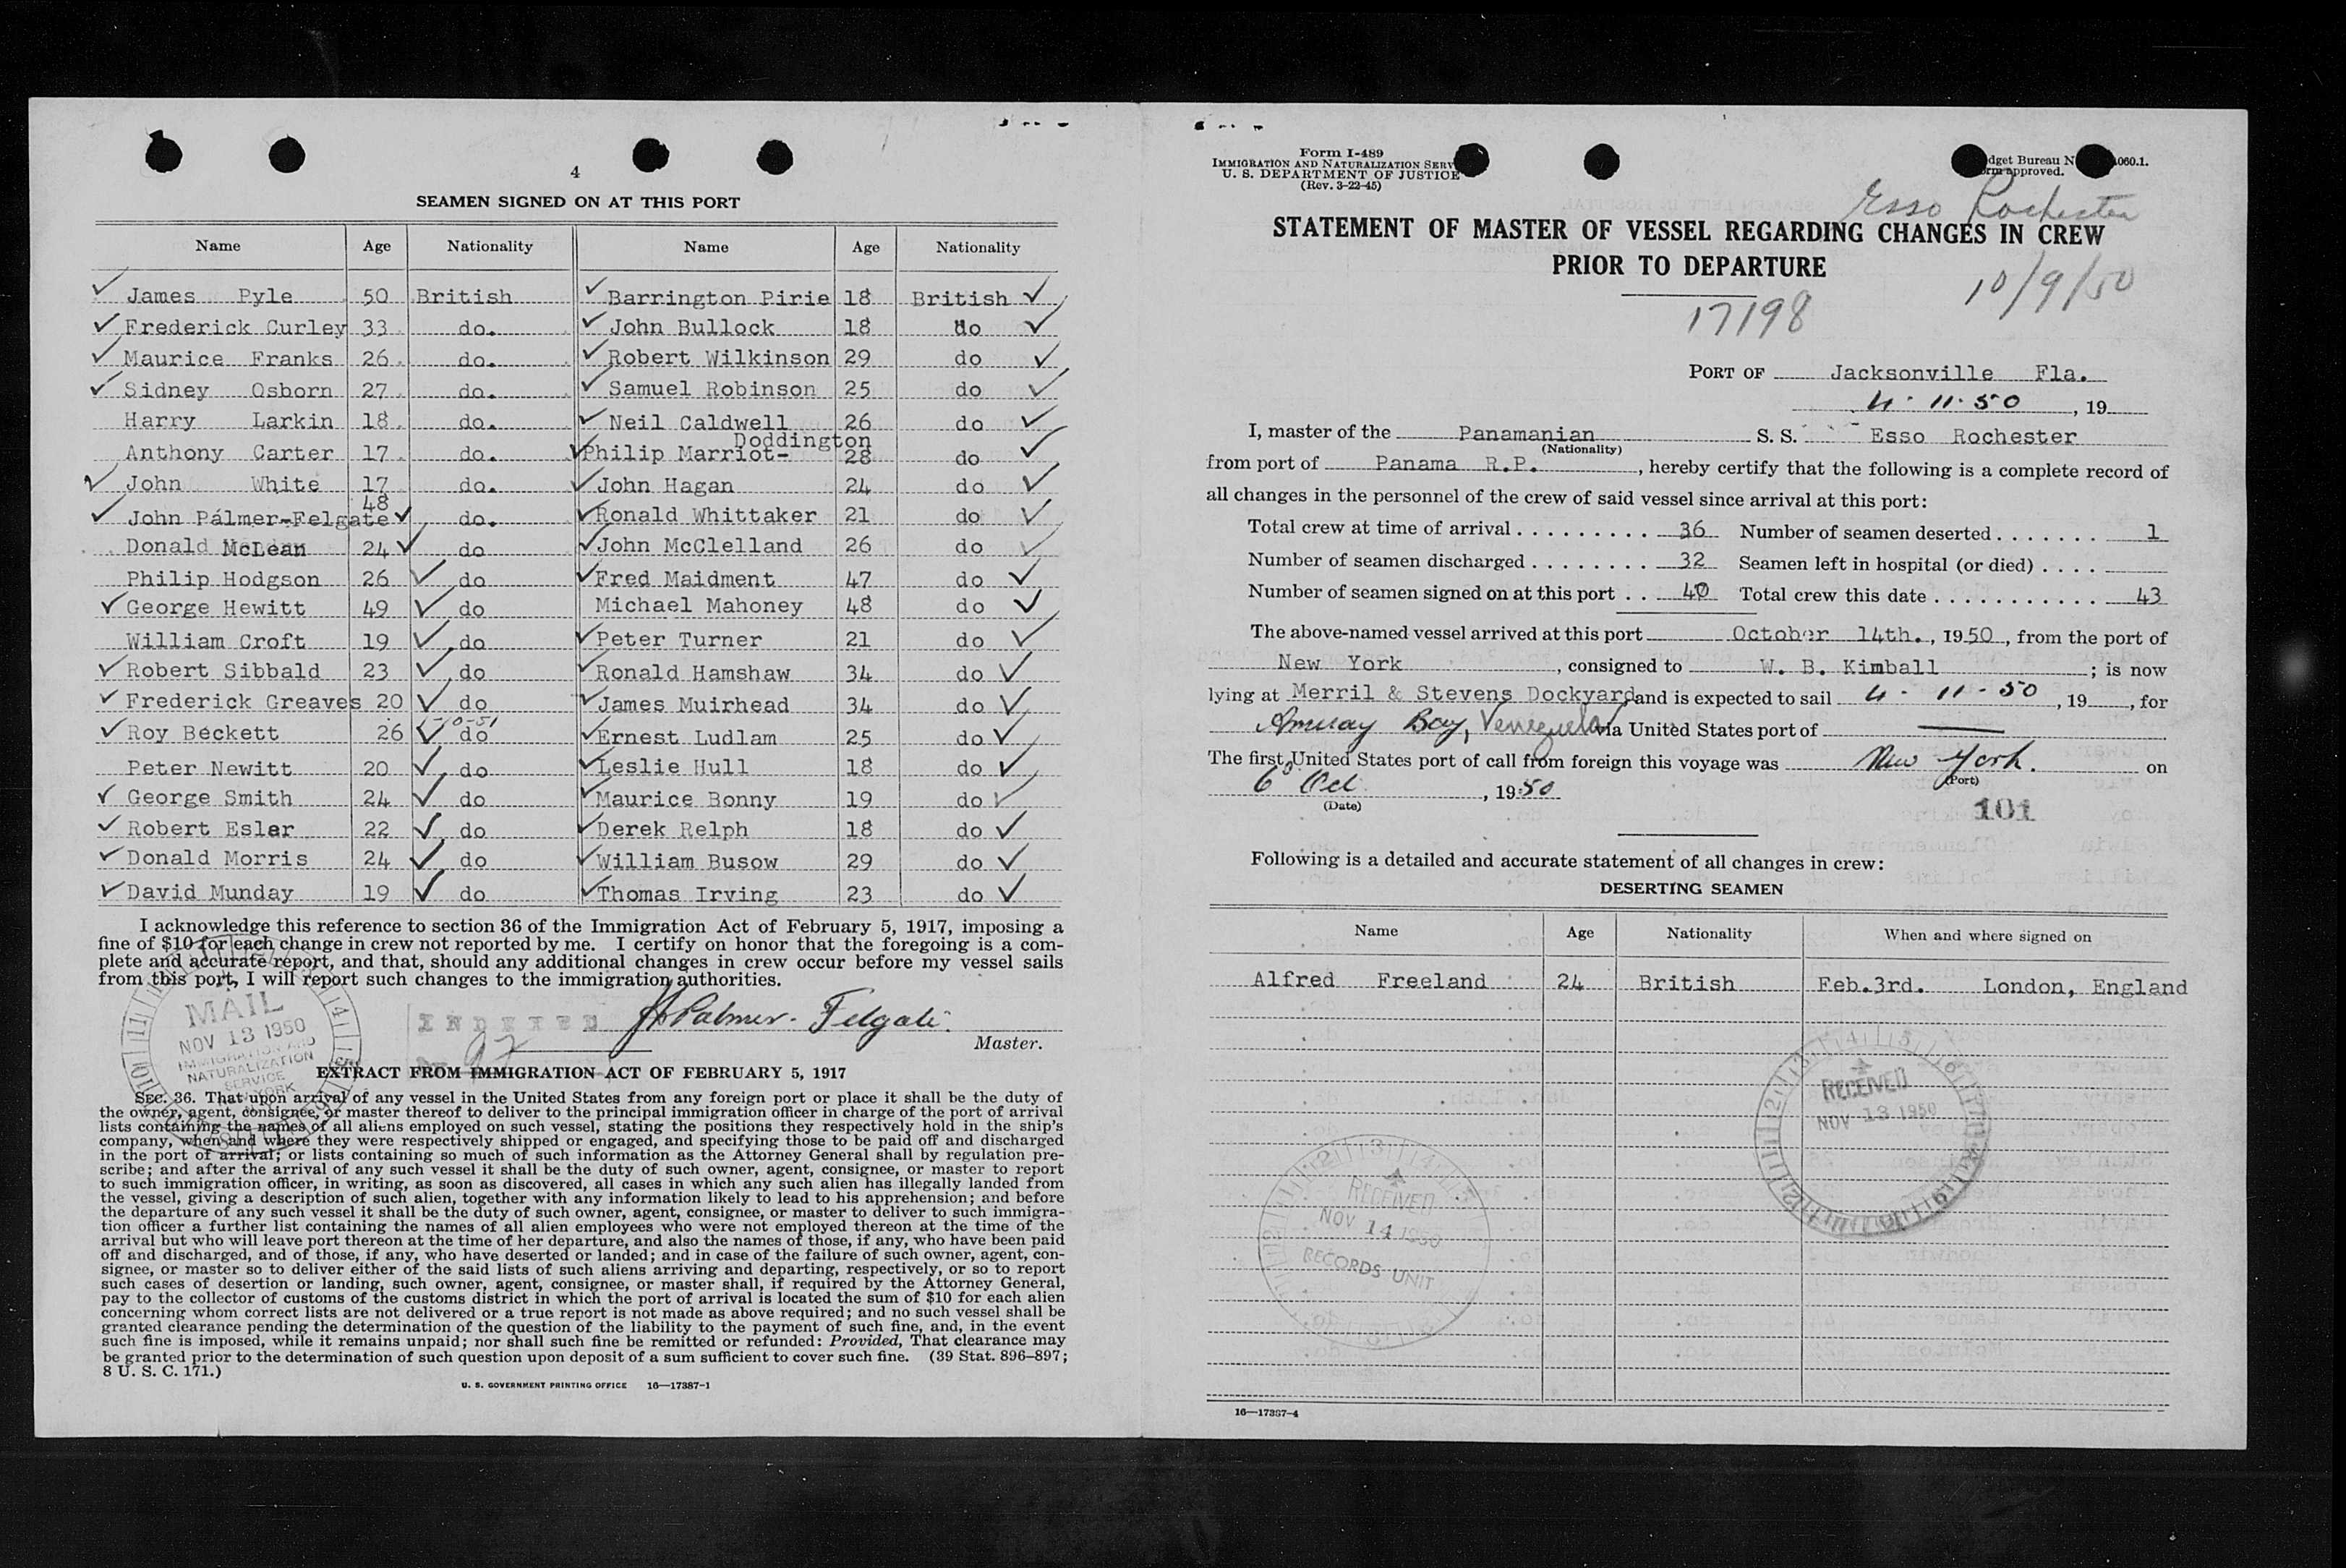 4
SEAMEN SIGNED ON AT THIS PORT
Name Age Nationality Name Age Nationality
James Pyle 50 British Barrington Pirie 18 British
Frederick Curley 33 do. John Bullock 18 do
Maurice Franks 26 do. Robert Wilkinson 29 do
Sidney Osborn 27 do. Samuel Robinson 25 do
Harry Larkin 18 do. Neil Caldwell 26 do
Anthony Carter 17 do. Philip Marriot-Doddington 28 do
John White 17 do. John Hagan 24 do
John Palmer-Felgate 48 do. Ronald Whittaker 21 do
Donald McLean 24 do John McClelland 26 do
Philip Hodgson 26 do Fred Maidment 47 do
George Hewitt 49 do Michael Mahoney 48 do
William Croft 19 do Peter Turner 21 do
Robert Sibbald 23 do Ronald Hamshaw 34 do
Frederick Greaves 20 do James Muirhead 34 do
Roy Beckett 26 do Ernest Ludlam 25 do
Peter Newitt 20 do Leslie Hull 18 do
George Smith 24 do Maurice Bonny 19 do
Robert Esler 22 do Derek Relph 18 do
Donald Morris 24 do William Busow 29 do
David Munday 19 do Thomas Irving 23 do
I acknowledge this reference to section 36 of the Immigration Act of February 5, 1917, imposing a
fine of $10 for each change in crew not reported by me. I certify on honor that the foregoing is a com-
plete and accurate report, and that, should any additional changes in crew occur before my vessel sails
from this port, I will report such changes to the immigration authorities.
MAIL
NOV 13 1950
IMMIGRATION AND
NATURALIZATION
SERVICE
NEW YORK
INDEXED
Palmer-Felgate.
Master.
EXTRACT FROM IMMIGRATION ACT OF FEBRUARY 5, 1917
SEC. 36. That upon arrival of any vessel in the United States from any foreign port or place it shall be the duty of
the owner, agent, consignee, or master thereof to deliver to the principal immigration officer in charge of the port of arrival
lists containing the names of all aliens employed on such vessel, stating the positions they respectively hold in the ship's
company, when and where they were respectively shipped or engaged, and specifying those to be paid off and discharged
in the port of arrival; or lists containing so much of such information as the Attorney General shall by regulation pre-
scribe; and after the arrival of any such vessel it shall be the duty of such owner, agent, consignee, or master to report
to such immigration officer, in writing, as soon as discovered, all cases in which any such alien has illegally landed from
the vessel, giving a description of such alien, together with any information likely to lead to his apprehension; and before
the departure of any such vessel it shall be the duty of such owner, agent, consignee, or master to deliver to such immigra-
tion officer a further list containing the names of all alien employees who were not employed thereon at the time of the
arrival but who will leave port thereon at the time of her departure, and also the names of those, if any, who have been paid
off and discharged, and of those, if any, who have deserted or landed; and in case of the failure of such owner, agent, con-
signee, or master so to deliver either of the said lists of such aliens arriving and departing, respectively, or so to report
such cases of desertion or landing, such owner, agent, consignee, or master shall, if required by the Attorney General,
pay to the collector of customs of the customs district in which the port of arrival is located the sum of $10 for each alien
concerning whom correct lists are not delivered or a true report is not made as above required; and no such vessel shall be
granted clearance pending the determination of the question of the liability to the payment of such fine, and, in the event
such fine is imposed, while it remains unpaid; nor shall such fine be remitted or refunded: Provided, That clearance may
be granted prior to the determination of such question upon deposit of a sum sufficient to cover such fine. (39 Stat. 896–897;
8 U. S. C. 171.)
U. S. GOVERNMENT PRINTING OFFICE 16—17387-1
Form I-489
IMMIGRATION AND NATURALIZATION SERV
U. S. DEPARTMENT OF JUSTICE
(Rev. 3-22-45)
dget Bureau N 060.1.
rm approved.
Esso Rochester
STATEMENT OF MASTER OF VESSEL REGARDING CHANGES IN CREW
PRIOR TO DEPARTURE
10/9/50
17198
PORT OF Jacksonville Fla.
4 · 11 · 50, 19
I, master of the Panamanian S. S. Esso Rochester
(Nationality)
from port of Panama R.P., hereby certify that the following is a complete record of
all changes in the personnel of the crew of said vessel since arrival at this port:
Total crew at time of arrival . . . . . . . . . 36 Number of seamen deserted . . . . . . . 1
Number of seamen discharged . . . . . . . . 32 Seamen left in hospital (or died) . . . .
Number of seamen signed on at this port . . 40 Total crew this date . . . . . . . . . . . . 43
The above-named vessel arrived at this port October 14th., 1950, from the port of
New York, consigned to W. B. Kimball; is now
lying at Merril & Stevens Dockyard and is expected to sail 4 - 11 - 50, 19, for
Amuay Bay, Venezuela via United States port of —
The first United States port of call from foreign this voyage was New York. on
(Port)
6 Oct, 1950
(Date)
101
Following is a detailed and accurate statement of all changes in crew:
DESERTING SEAMEN
Name Age Nationality When and where signed on
Alfred Freeland 24 British Feb.3rd. London, England
RECEIVED
NOV 13 1950
RECEIVED
NOV 14 1950
RECORDS UNIT
16—17387-4